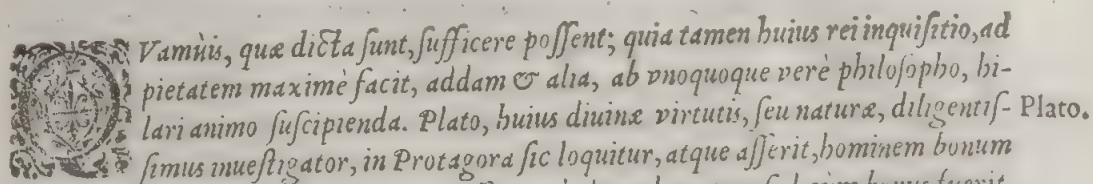 QVamùis, quæ dicta sunt, sufficere possent; quia tamen huius rei inquisitio, ad
pietatem maximè facit, addam & alia, ab vnoquoque verè philosopho, hi-
lari animo suscipienda. Plato, huius diuinæ virtutis, seu naturæ, diligentis- Plato.
simus inuestigator, in Protagora sic loquitur, atque asserit, hominem bonum